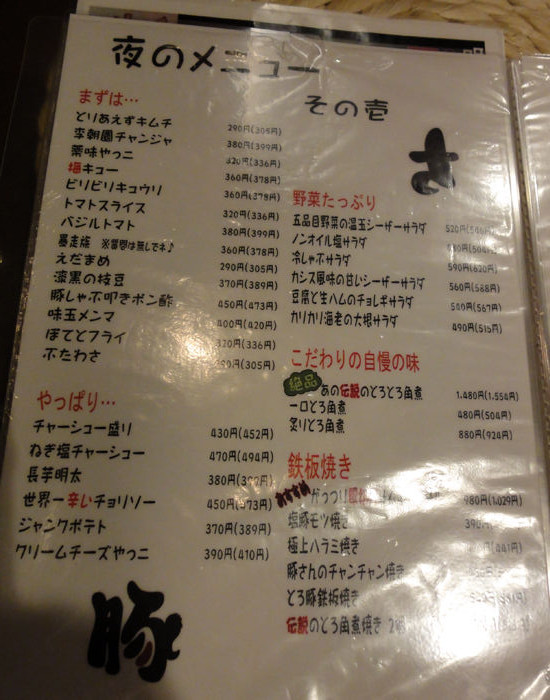 夜のメニュー
その壱
まずは…
とりあえずキムチ 290円(305円)
李朝園チャンジャ 380円(399円)
薬味やっこ 320円(336円)
梅キュー 360円(378円)
ピリピリキョウリ 360円(378円)
トマトスライス 320円(336円)
バジルトマト 380円(399円)
暴走族 ※音響は無しでネ♪ 360円(378円)
えだまめ 290円(305円)
漆黒の枝豆 370円(389円)
豚しゃぶ叩きポン酢 450円(473円)
味玉メンマ 400円(420円)
ぽてとフライ 320円(336円)
ぶたわさ 290円(305円)
やっぱり…
チャーシュー盛り 430円(452円)
ねぎ塩チャーシュー 470円(494円)
長芋明太 380円
世界一辛いチョリソー 450円(473円)
ジャンクポテト 370円(389円)
クリームチーズやっこ 390円(410円)
豚
野菜たっぷり
五品目野菜の温玉シーザーサラダ 520円
ノンオイル塩サラダ
冷しゃぶサラダ 590円(620円)
カシス風味の甘いシーザーサラダ 560円(588円)
豆腐と生ハムのチョレギサラダ 540円(567円)
カリカリ海老の大根サラダ 490円(515円)
こだわりの自慢の味
絶品 あの伝説のとろとろ角煮 1.480円(1.554円)
一口とろ角煮 480円(504円)
炙りとろ角煮 880円(924円)
鉄板焼き
おすすめ がっつり 980円(1.029円)
塩豚モツ焼き 390円
極上ハラミ焼き
豚さんのチャンチャン焼き
とろ豚鉄板焼き
伝説のとろ角煮焼き